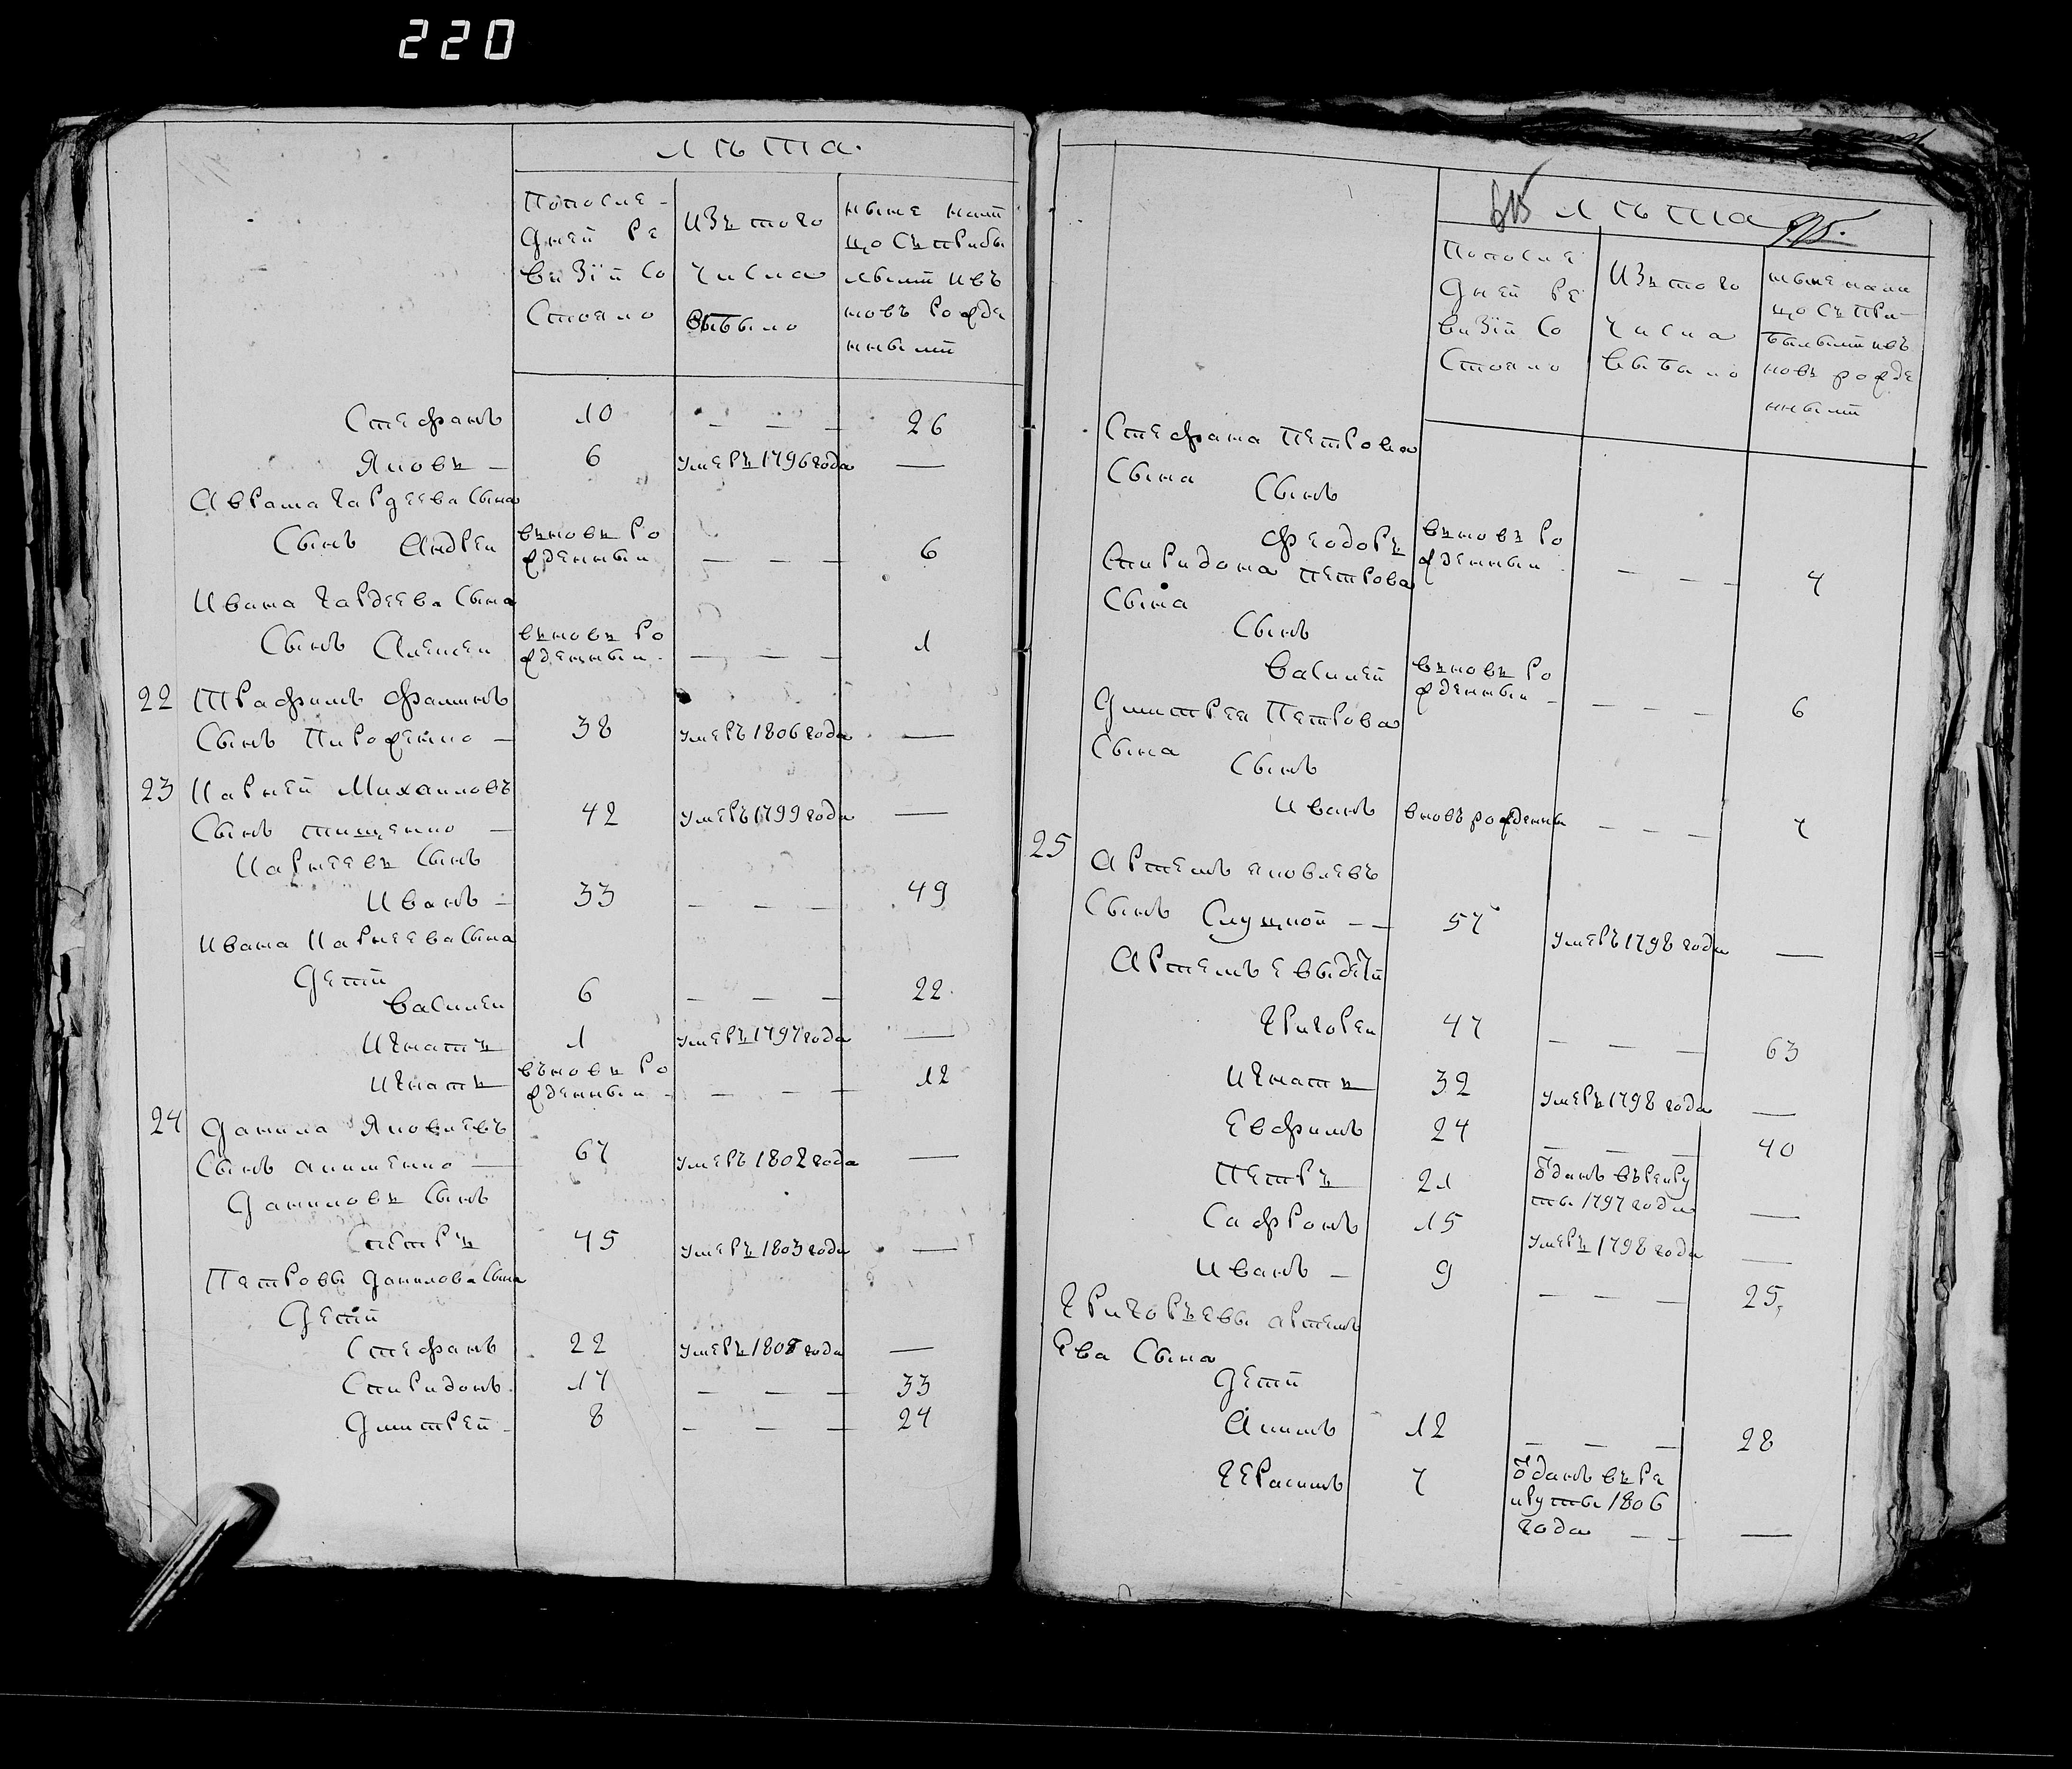 220
лѣта.
Попослѣ-
дней ре
визіи со
стояло
изъ того
числа
выбыло
ныне нали
цо съ прибы
лыми и въ
новь рожде
нными
Стефанъ 10 — — — 26
Яковъ — 6 умеръ 1796 года —
Аврама Гардеева сына
сынъ Андрей вновь ро
жденный — — — 6
Ивана Гардеева сына
сынъ Алексей вновь ро
жденный — — — 1
22 Трафимъ Фаминъ
сынъ Пироженко — 38 умеръ 1806 года —
23 Карней Михаиловъ
сынъ тищенко — 42 умеръ 1799 года —
Карнеевъ сынъ
Иванъ — 33 — — — 49
Ивана Карнеева сына
дети
Василей 6 — — — 22
Игнатъ 1 умеръ 1797 года —
Игнатъ вновь ро
жденный — — — 12
24 Данила Яковлевъ
сынъ акименко — 67 умеръ 1802 года —
Даниловъ сынъ
петръ 45 умеръ 1803 года —
Петровы данилова сына
дети
Стефанъ 22 умеръ 1808 года —
Спиридонъ 17 — — — 33
Дмитрей 8 — — — 24
лѣта
Попослѣ
дней ре
визіи со
стояло
изъ того
числа
выбыло
ныне нали
цо съ при-
былыми и въ
новь рожде
нными
Стефана Петрова
сына
сынъ
Феодоръ вновь ро
жденный — — — 7
Спиридона петрова
сына
сынъ
Василей вновь ро
жденный — — — 6
Дмитрея Петрова
сына
сынъ
Иванъ вновь рожденны — — — 7
25 Артемъ яковлевъ
сынъ Слуцкой — — 57 умеръ 1798 года —
Артемьевы дети
Григорей 47 — — — 63
Игнатъ 32 умеръ 1798 года —
Евфимъ 24 — — 40
Петръ 21 ѿданъ въ рекру
ты 1797 года —
Сафронъ 15 умеръ 1798 года —
Иванъ — 9 — — — 25,
Григорьевы артемь
ева сына
дети
Акимъ 12 — — — 28
Герасимъ 7 ѿданъ въ ре
круты 1806
года — — —